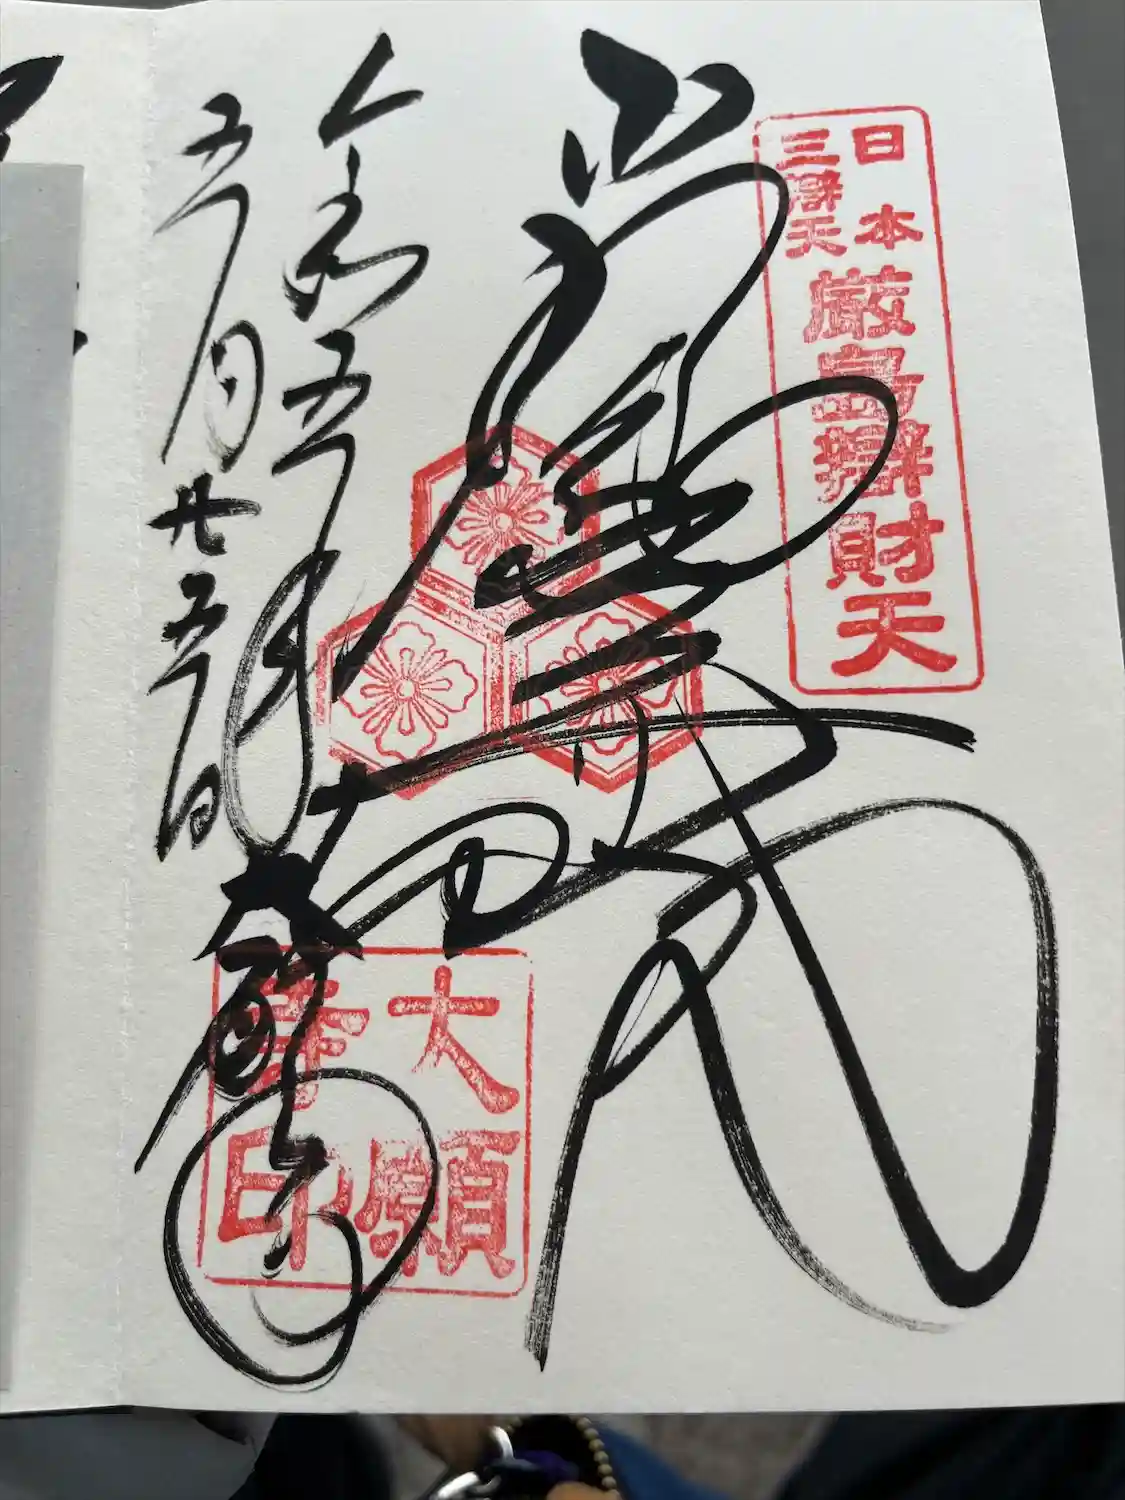 日本
三辯天
厳島辯財天
厳島辯財天
令和五年
五月廿五日
大願寺
大願
寺印